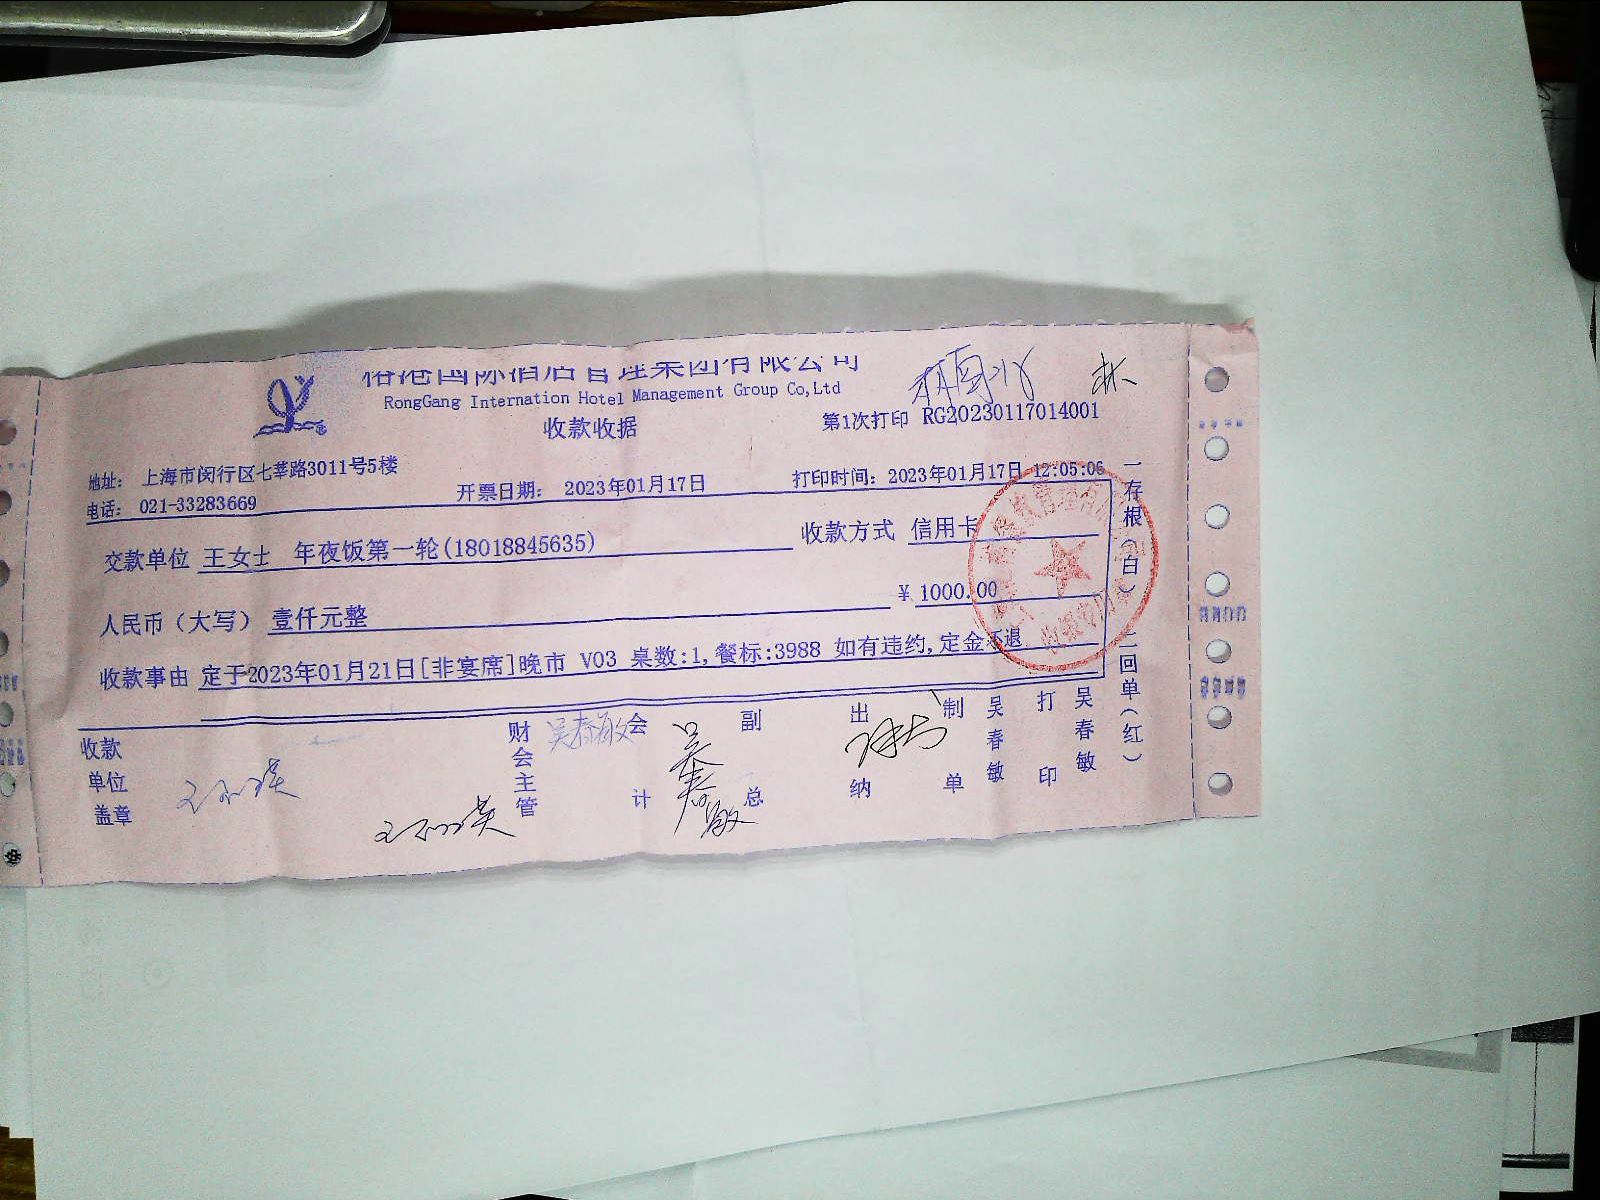 国际酒店管理集团有限公司
RongGang Internation Hotel Management Group Co,Ltd
收款收据
第1次打印 RG20230117014001
地址： 上海市闵行区七莘路3011号5楼
电话： 021-33283669
开票日期： 2023年01月17日
打印时间：2023年01月17日 12:05:06
交款单位 王女士 年夜饭第一轮(18018845635)
收款方式 信用卡
人民币（大写） 壹仟元整
￥ 1000.00
收款事由 定于2023年01月21日[非宴席]晚市 V03 桌数:1,餐标:3988 如有违约,定金不退
一存根（白） 二回单（红）
收款单位盖章
财会主管 吴春敏
会计 吴春敏
副总
出纳
制单 吴春敏
打印 吴春敏